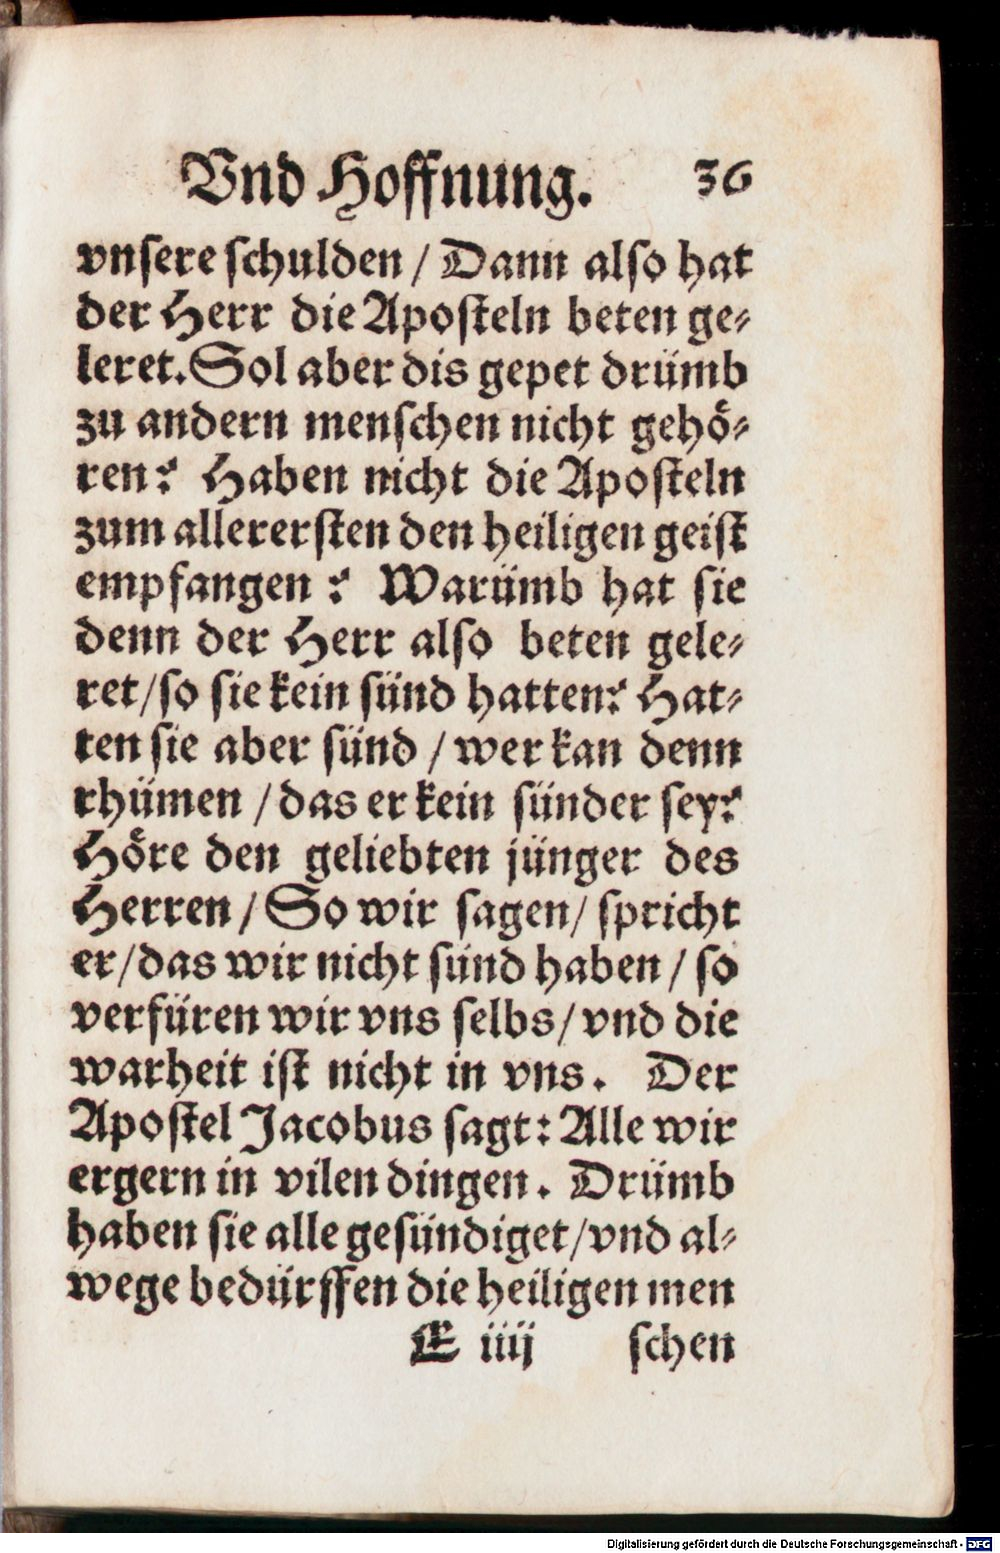 Vnd Hoffnung. 36
vnsere schulden / Dann also hat
der Herr die Aposteln beten ge⸗
leret. Sol aber dis gepet drümb
zu andern menschen nicht gehö⸗
ren? Haben nicht die Aposteln
zum allerersten den heiligen geist
empfangen? Warümb hat sie
denn der Herr also beten gele⸗
ret / so sie kein sünd hatten? Hat⸗
ten sie aber sünd / wer kan denn
rhümen / das er kein sünder sey?
Höre den geliebten jünger des
Herren / So wir sagen / spricht
er / das wir nicht sünd haben / so
verfüren wir vns selbs / vnd die
warheit ist nicht in vns. Der
Apostel Jacobus sagt: Alle wir
ergern in vilen dingen. Drümb
haben sie alle gesündiget / vnd al⸗
wege bedürffen die heiligen men
E iiij schen
Digitalisierung gefördert durch die Deutsche Forschungsgemeinschaft - DFG